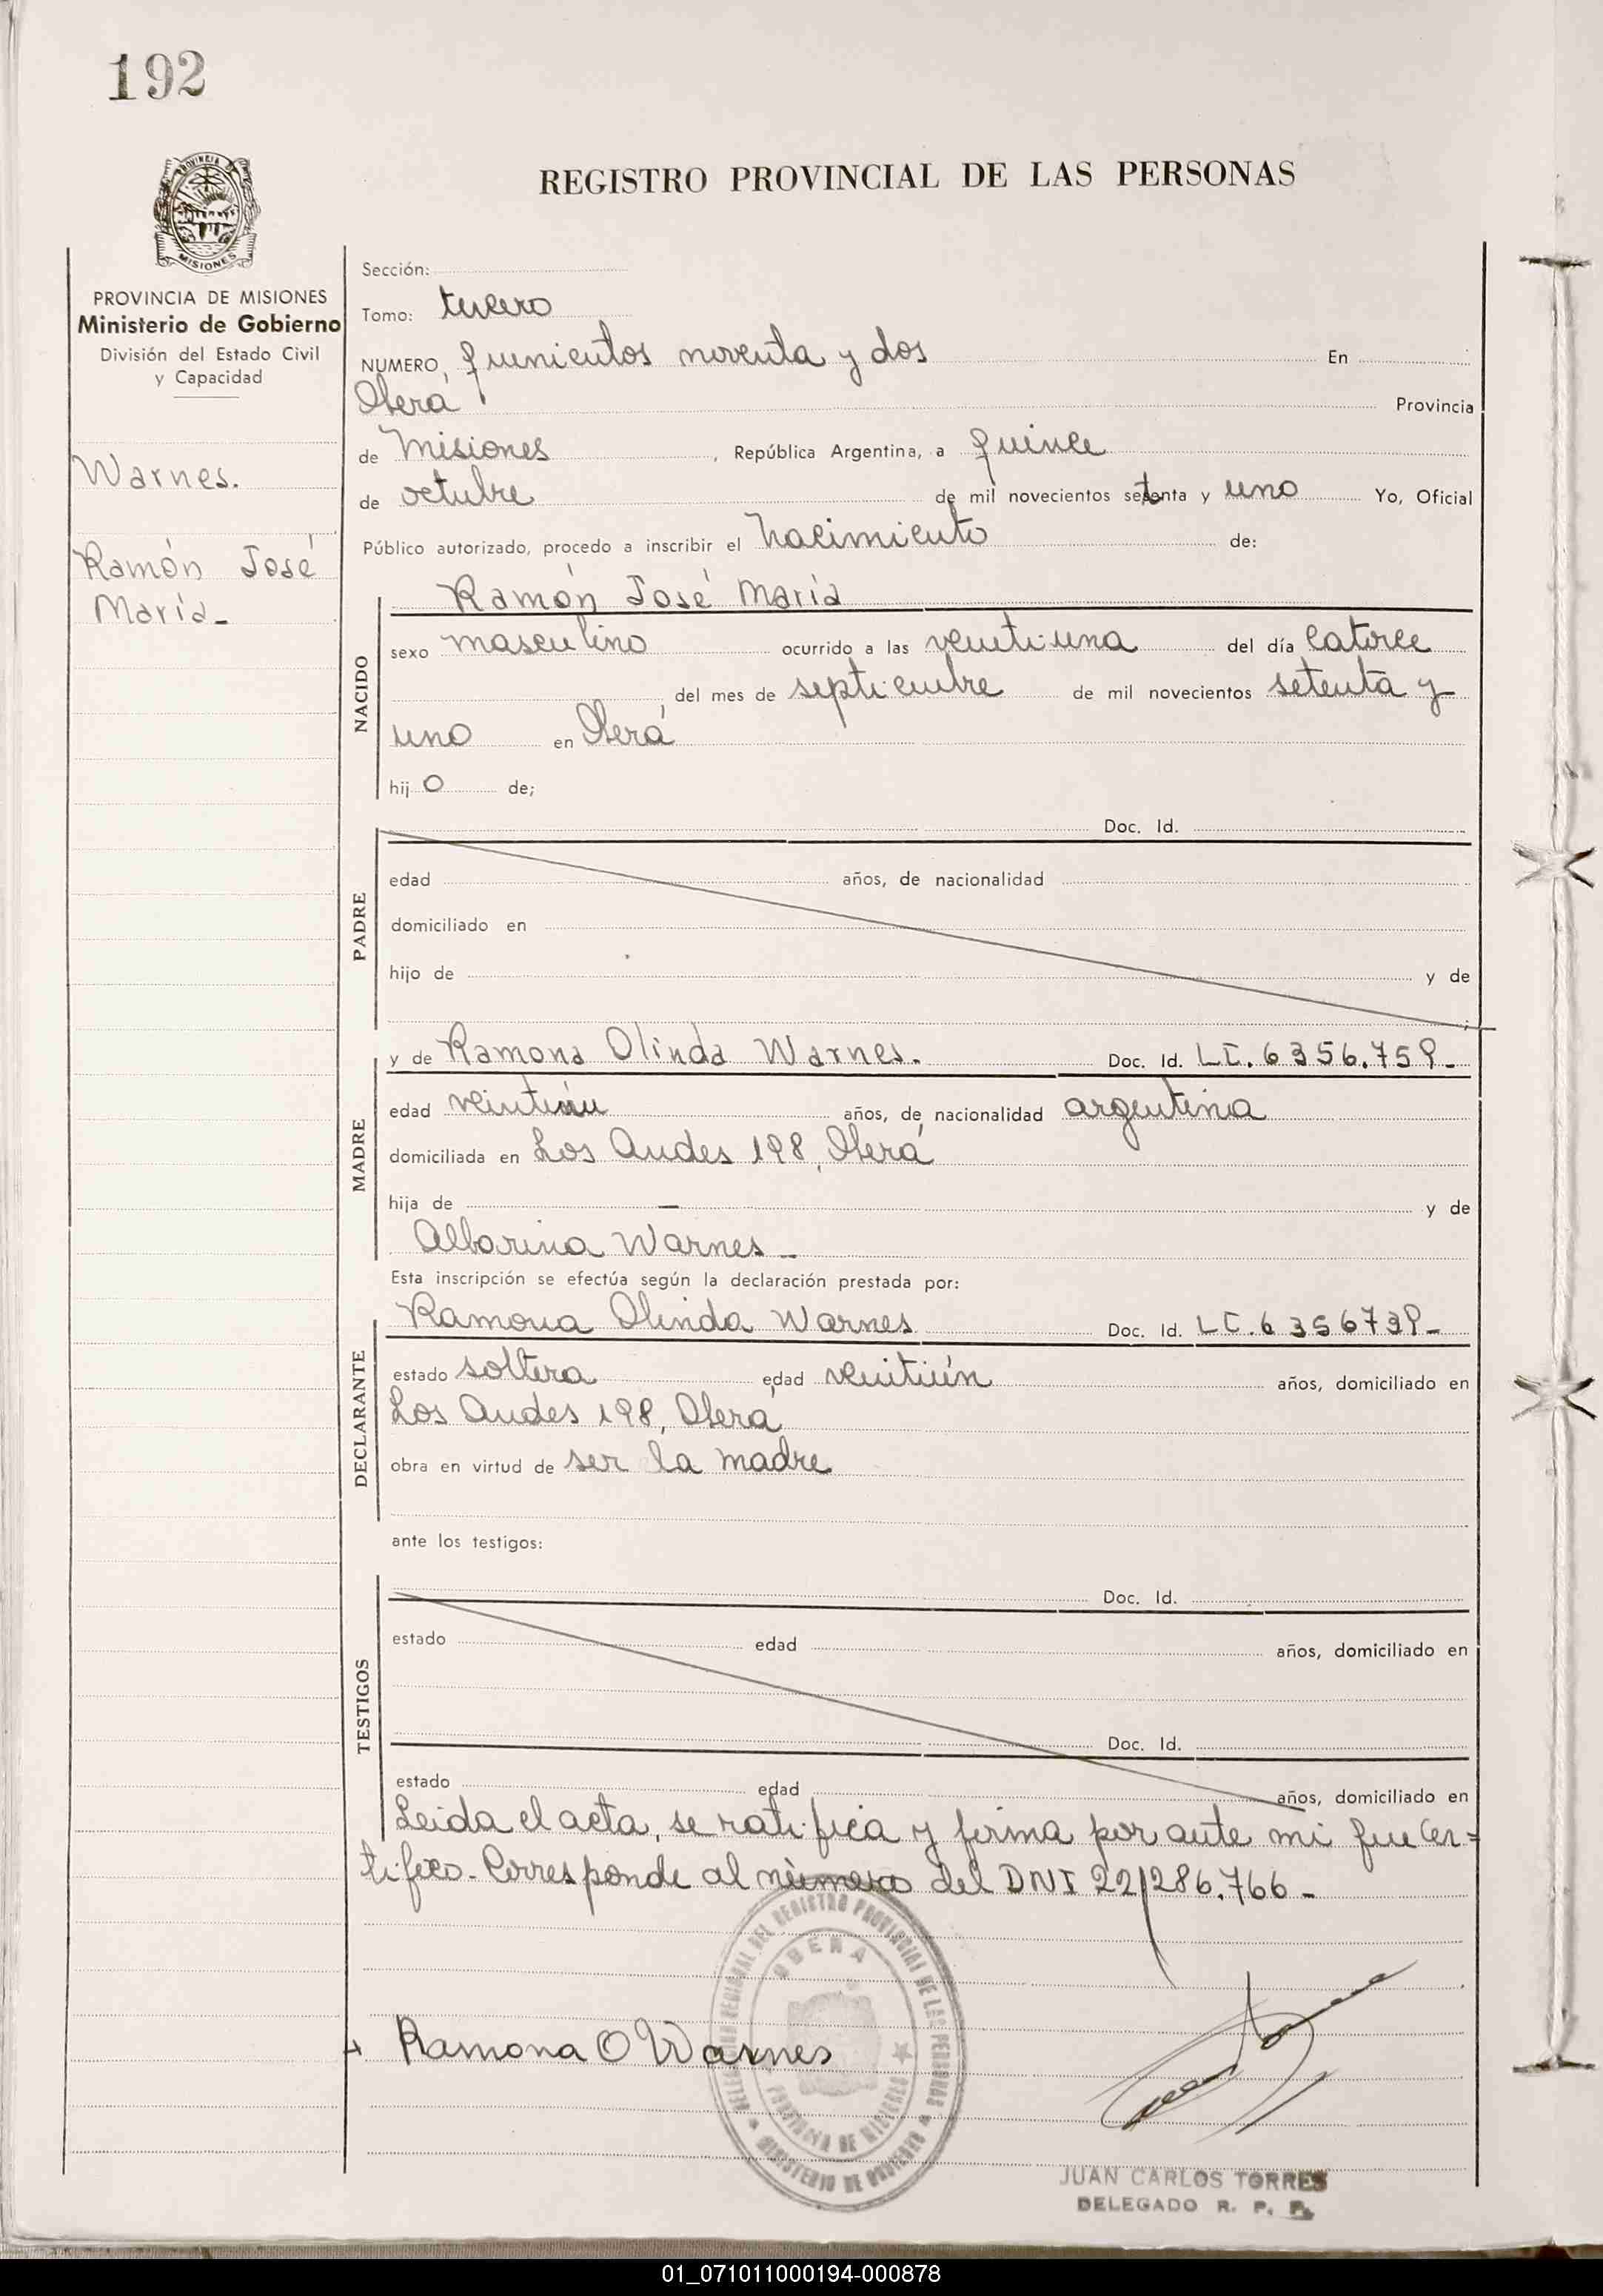 192
PROVINCIA
MISIONES
REGISTRO PROVINCIAL DE LAS PERSONAS
PROVINCIA DE MISIONES
Ministerio de Gobierno
División del Estado Civil
y Capacidad
Warnes.
Ramón José
María_
Sección:
Tomo: tercero
NUMERO, quinientos noventa y dos En
Oberá Provincia
de Misiones, República Argentina, a quince
de octubre de mil novecientos setenta y uno Yo, Oficial
Público autorizado, procedo a inscribir el nacimiento de:
NACIDO
Ramón José María
sexo masculino ocurrido a las veintiuna del día catorce
del mes de septiembre de mil novecientos setenta y
uno en Oberá
hij o de;
PADRE
Doc. Id.
edad años, de nacionalidad
domiciliado en
hijo de y de
MADRE
y de Ramona Olinda Warnes. Doc. Id. LC. 6356.759_
edad veintiún años, de nacionalidad argentina
domiciliada en Los Andes 198, Oberá
hija de — y de
Albarina Warnes_
Esta inscripción se efectúa según la declaración prestada por:
DECLARANTE
Ramona Olinda Warnes Doc. Id. LC. 6356739_
estado soltera edad veintiún años, domiciliado en
Los Andes 198, Oberá
obra en virtud de ser la madre
ante los testigos:
TESTIGOS
Doc. Id.
estado edad años, domiciliado en
Doc. Id.
estado edad años, domiciliado en
Leida el acta, se ratifica y firma por ante mi que cer=
tifico. Corresponde al número del DNI 22/286.766_
DELEGACION REGIONAL DEL REGISTRO PROVINCIAL DE LAS PERSONAS
OBERA
PROVINCIA DE MISIONES
MINISTERIO DE GOBIERNO
Ramona O Warnes
JUAN CARLOS TORRES
DELEGADO R. P. P.
01_071011000194-000878